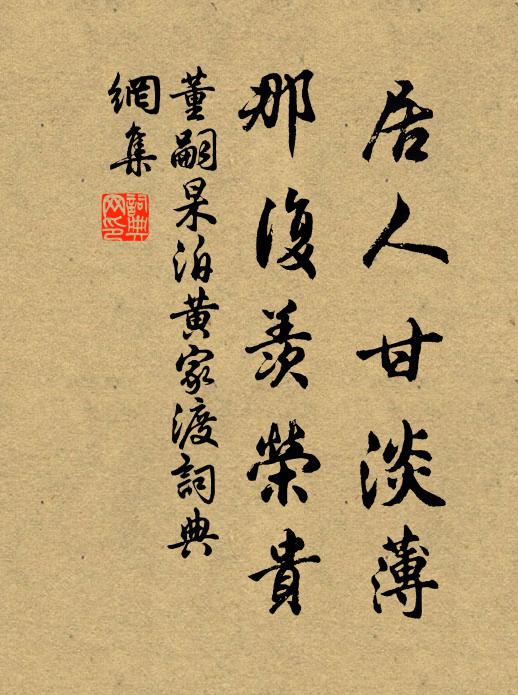 居人甘淡薄
那復羨榮貴
董嗣杲泊黄家渡詞典
網集
詞典网印